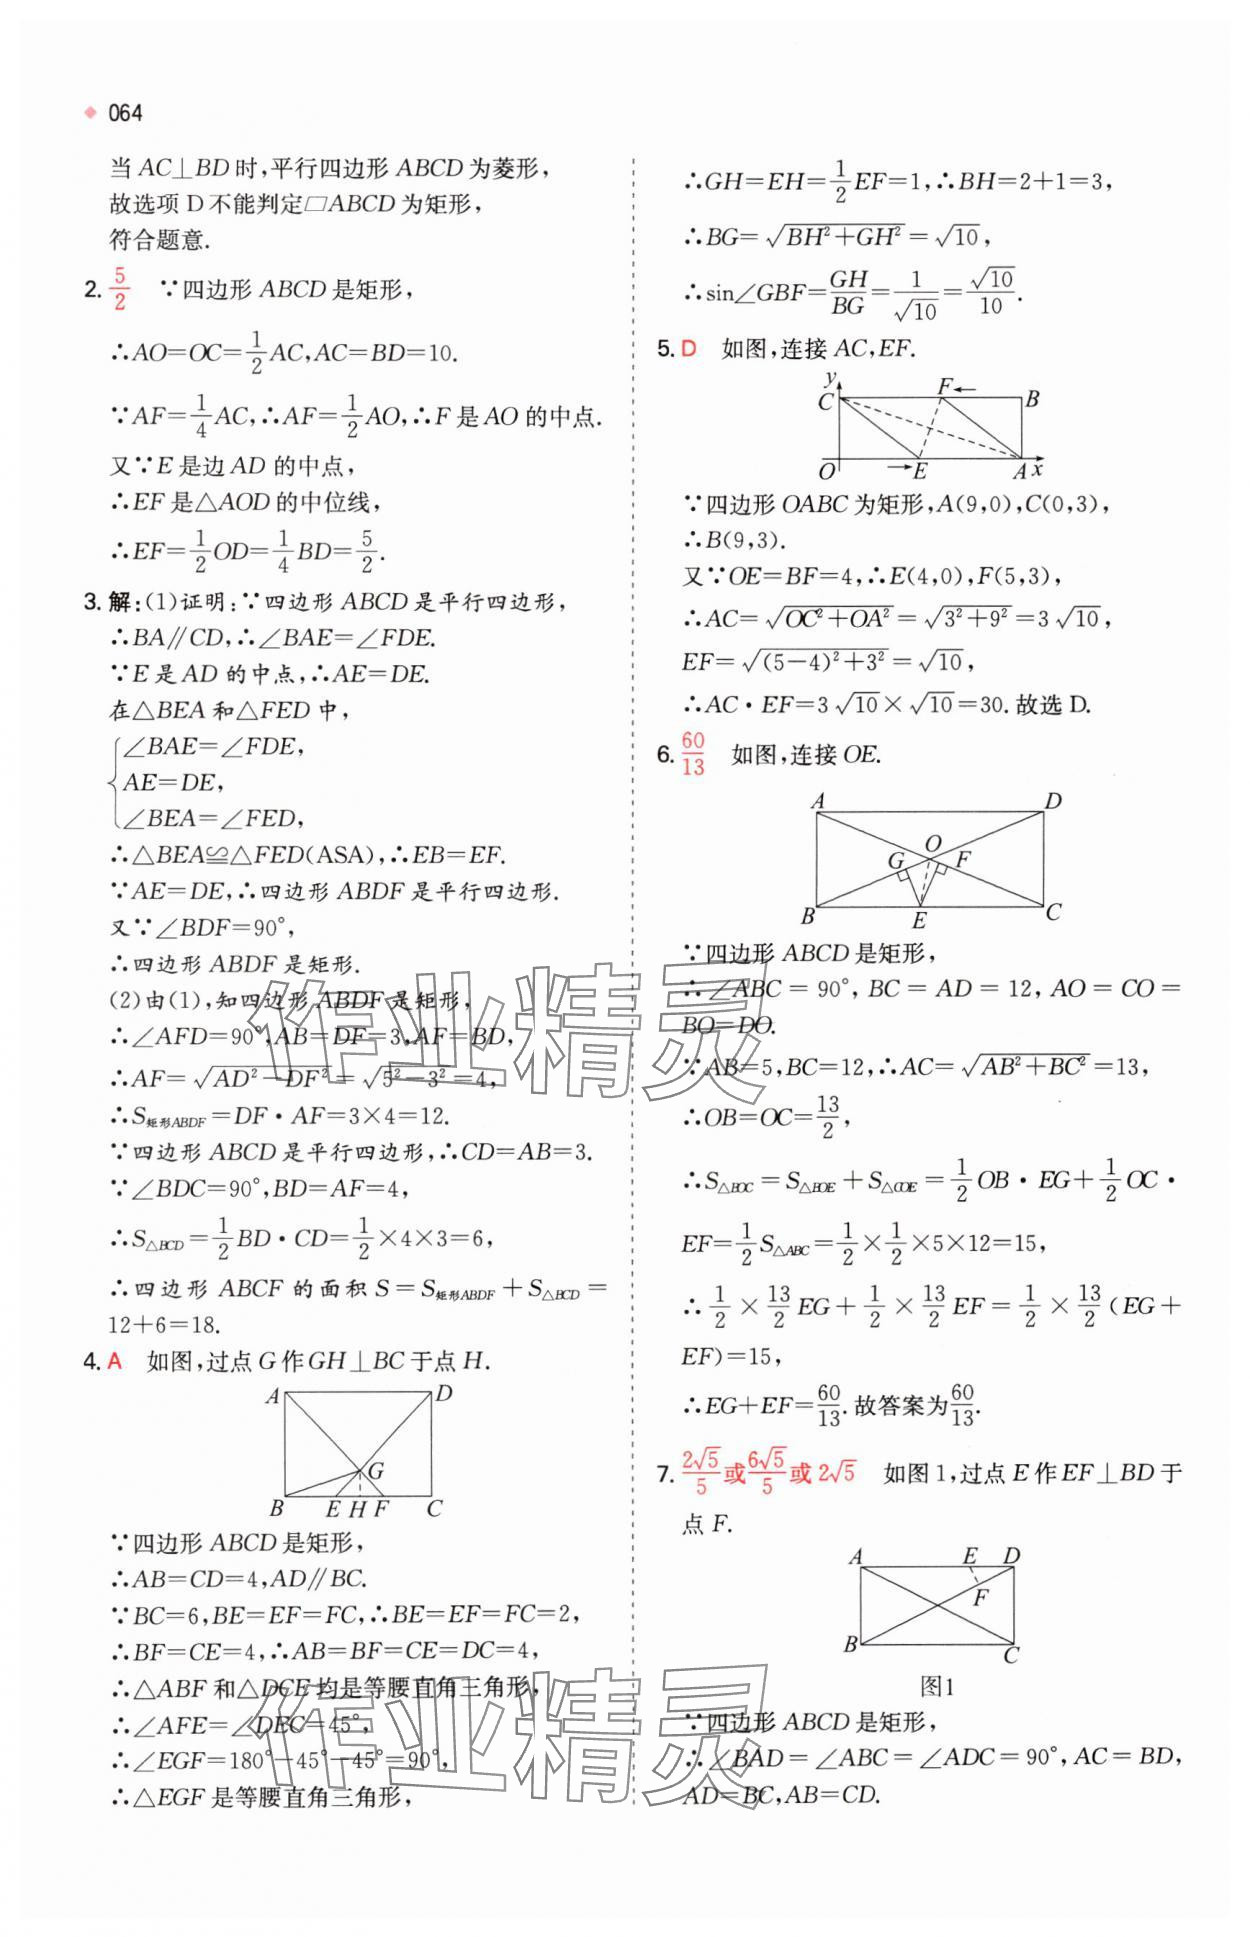 064
当 AC⊥BD 时,平行四边形 ABCD 为菱形,
故选项 D 不能判定▱ABCD 为矩形,
符合题意.
2. 5/2 ∵四边形 ABCD 是矩形,
∴AO=OC=1/2 AC,AC=BD=10.
∵AF=1/4 AC,∴AF=1/2 AO,∴F 是 AO 的中点.
又∵E 是边 AD 的中点,
∴EF 是△AOD 的中位线,
∴EF=1/2 OD=1/4 BD=5/2.
3. 解:(1)证明:∵四边形 ABCD 是平行四边形,
∴BA∥CD,∴∠BAE=∠FDE.
∵E 是 AD 的中点,∴AE=DE.
在△BEA 和△FED 中,
∠BAE=∠FDE,
AE=DE,
∠BEA=∠FED,
∴△BEA≌△FED(ASA),∴EB=EF.
∵AE=DE,∴四边形 ABDF 是平行四边形.
又∵∠BDF=90°,
∴四边形 ABDF 是矩形.
(2)由(1),知四边形 ABDF 是矩形,
∴∠AFD=90°,AB=DF=3,AF=BD,
∴AF=√(AD²−DF²)=√(5²−3²)=4,
∴S矩形ABDF=DF·AF=3×4=12.
∵四边形 ABCD 是平行四边形,∴CD=AB=3.
∵∠BDC=90°,BD=AF=4,
∴S△BCD=1/2 BD·CD=1/2×4×3=6,
∴四边形 ABCF 的面积 S=S矩形ABDF+S△BCD=
12+6=18.
4. A 如图,过点 G 作 GH⊥BC 于点 H.
A D
G
B E H F C
∵四边形 ABCD 是矩形,
∴AB=CD=4,AD∥BC.
∵BC=6,BE=EF=FC,∴BE=EF=FC=2,
∴BF=CE=4,∴AB=BF=CE=DC=4,
∴△ABF 和△DCE 均是等腰直角三角形,
∴∠AFE=∠DEC=45°,
∴∠EGF=180°−45°−45°=90°,
∴△EGF 是等腰直角三角形,
∴GH=EH=1/2 EF=1,∴BH=2+1=3,
∴BG=√(BH²+GH²)=√10,
∴sin∠GBF=GH/BG=1/√10=√10/10.
5. D 如图,连接 AC,EF.
y F B
C
O E A x
∵四边形 OABC 为矩形,A(9,0),C(0,3),
∴B(9,3).
又∵OE=BF=4,∴E(4,0),F(5,3),
∴AC=√(OC²+OA²)=√(3²+9²)=3√10,
EF=√((5−4)²+3²)=√10,
∴AC·EF=3√10×√10=30.故选 D.
6. 60/13 如图,连接 OE.
A D
O
G F
B E C
∵四边形 ABCD 是矩形,
∴∠ABC=90°,BC=AD=12,AO=CO=
BO=DO.
∵AB=5,BC=12,∴AC=√(AB²+BC²)=13,
∴OB=OC=13/2,
∴S△BOC=S△BOE+S△COE=1/2 OB·EG+1/2 OC·
EF=1/2 S△ABC=1/2×1/2×5×12=15,
∴1/2×13/2 EG+1/2×13/2 EF=1/2×13/2(EG+
EF)=15,
∴EG+EF=60/13.故答案为60/13.
7. 2√5/5或6√5/5或 2√5 如图 1,过点 E 作 EF⊥BD 于
点 F.
A E D
F
B C
图1
∵四边形 ABCD 是矩形,
∴∠BAD=∠ABC=∠ADC=90°,AC=BD,
AD=BC,AB=CD.
作业精灵
作业精灵